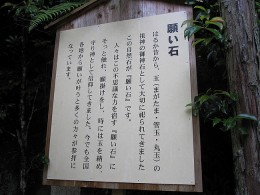 願い石
はるか昔から、玉(まがたま・管玉・丸玉)の
祖神の御神石として大切に祀られてきました
この自然石が『願い石』です。
人々はこの不思議な力を宿す『願い石』に
そっと触れ、願掛けをし、時には玉を納め、
守り神として信仰してきました。今でも全国
各地から願いが叶うと多くの方々が参拝に
なっています。